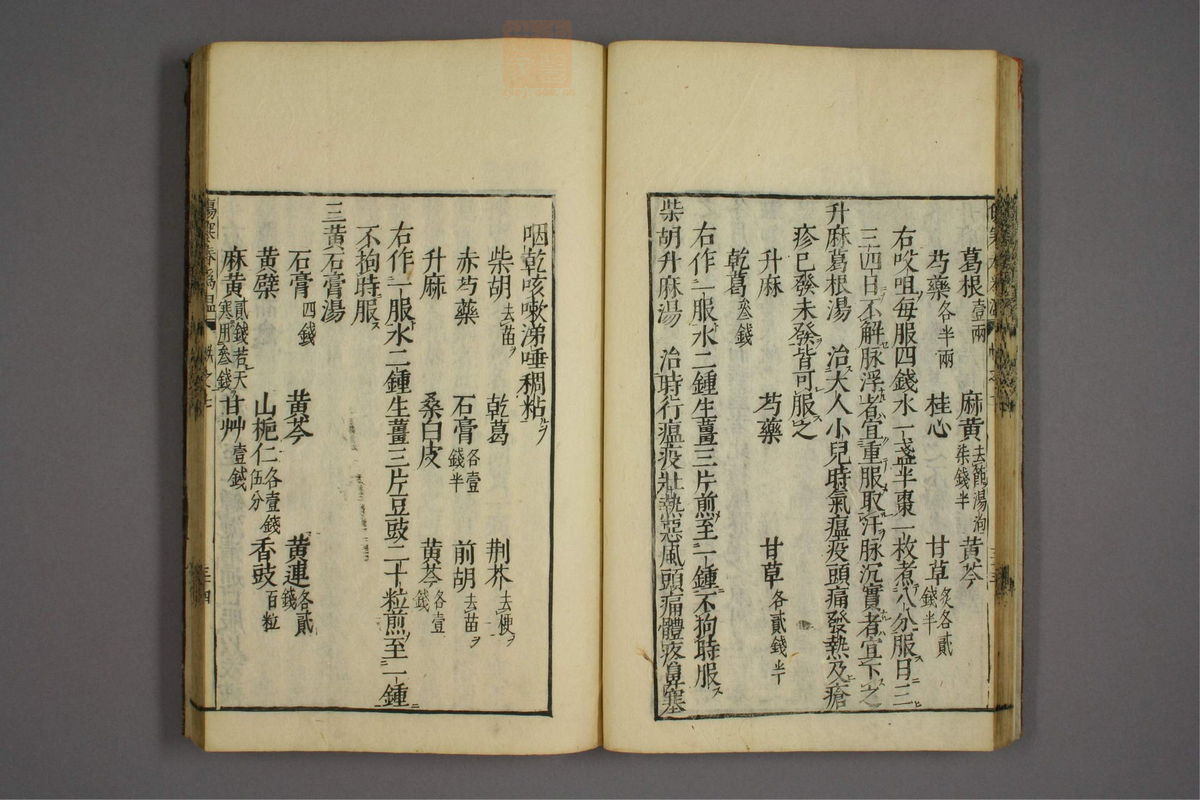 葛根壹兩 麻黄去節湯泡柒錢半 黄芩
芍藥各半兩 桂心 甘草炙各貳錢半
右㕮咀每服四錢水一盞半棗一枚煮八分服日二
三四日不解脉浮者宜重服取汗脉沉實者宜下之
升麻葛根湯 治大人小兒時氣瘟疫頭痛發熱及瘡
疹已發未發皆可服之
升麻 芍藥 甘草各貳錢半
乾葛叁錢
右作一服水二鍾生薑三片煎至一鍾不狗時服
柴胡升麻湯 治時行瘟疫壯熱惡風頭痛體疼鼻塞
咽乾咳嗽涕唾稠粘
柴胡去苗ヲ 乾葛 荆芥去梗ヲ
赤芍藥 石膏各壹錢半 前胡去苗ヲ
升麻 桑白皮 黄芩各壹錢
右作一服水二鍾生薑三片豆豉二十粒煎至一鍾
不狗時服
三黄石膏湯
石膏四錢 黄芩 黄連各貳錢
黄蘗 山梔仁各壹錢伍分 香豉百粒
麻黄貳錢若天寒用叁錢 甘艸壹錢
三十四